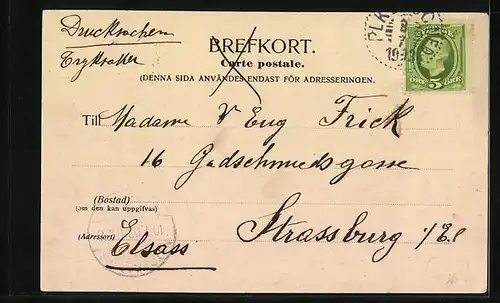 Drucksachen
Tryksaker
BREFKORT.
Carte postale.
(DENNA SIDA ANVÄNDES ENDAST FÖR ADRESSERINGEN.)
5 ÖRE 5
Till Madame V Eug Frick
16 Godschmiedsgasse
(Bostad)
(om den kan uppgifvas)
Strassburg i/El
(Adressort)
Elsass